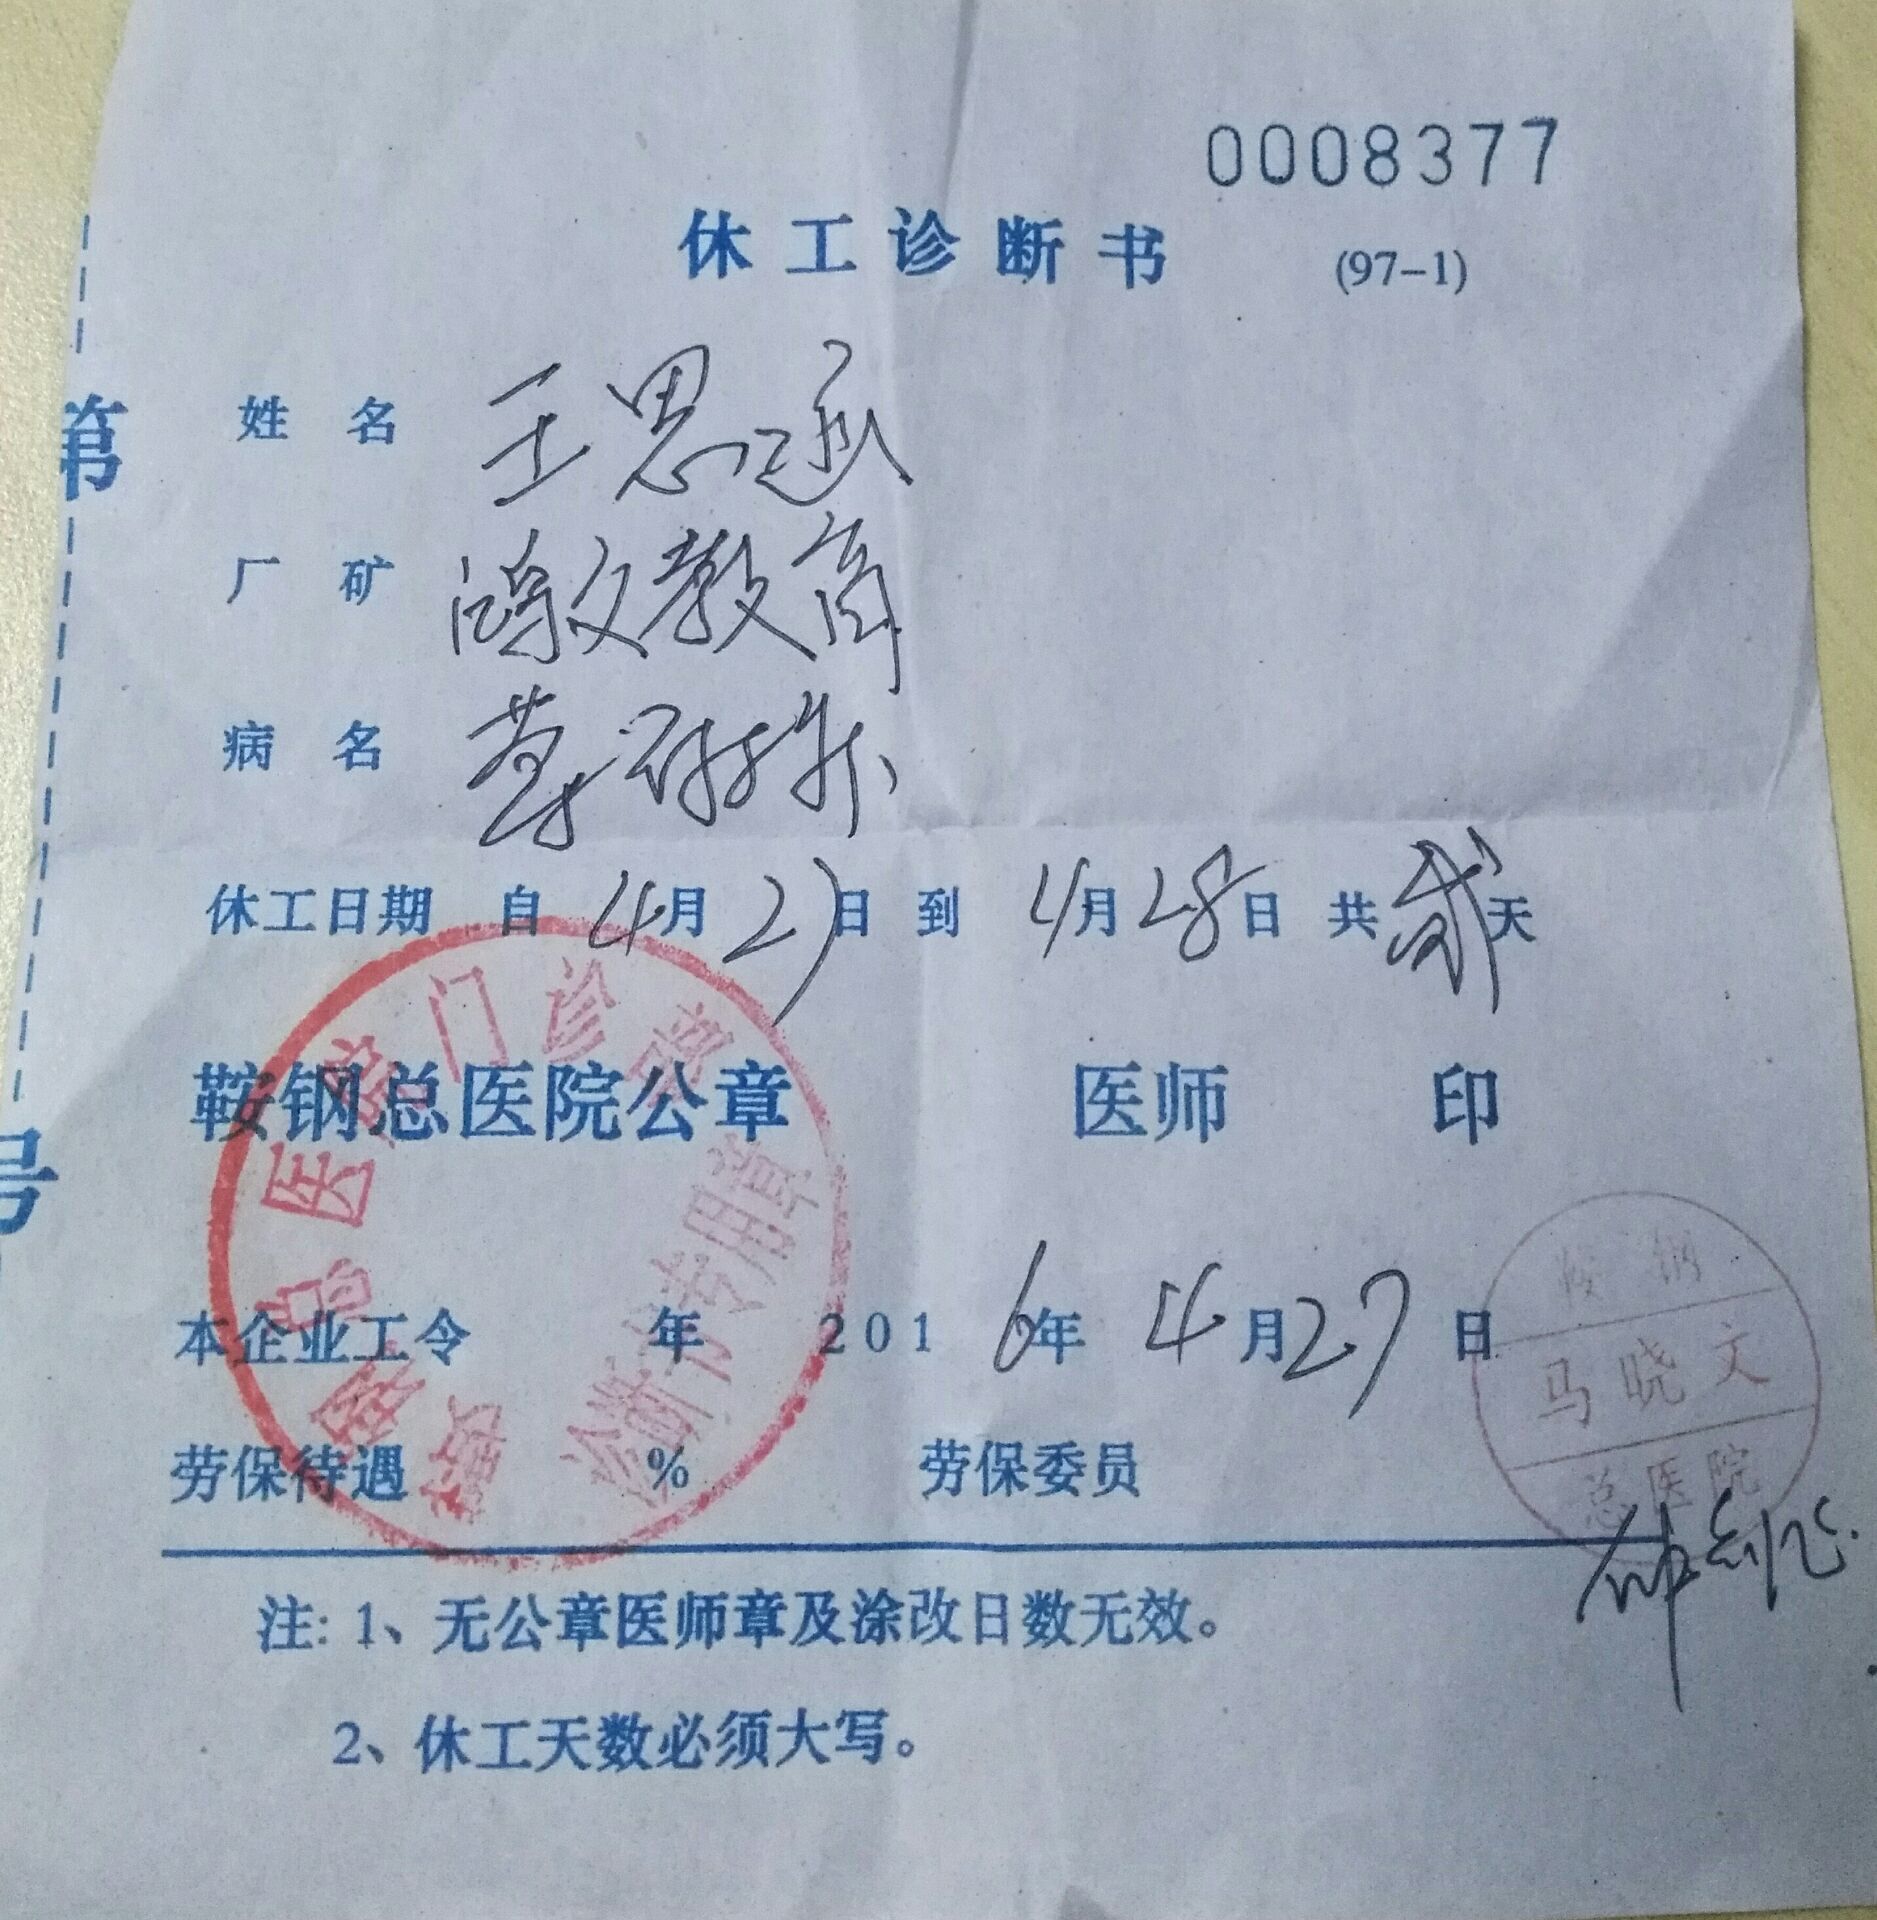 0008377
休工诊断书 (97-1)
第
姓名 王思涵
厂矿 鸿文教育
病名 荨麻疹
休工日期 自 4月27日 到 4月28日 共贰天
鞍钢总医院公章 医师 印
号
本企业工令 年 2016年 4月27日
劳保待遇 % 劳保委员
鞍钢总医院门诊部
诊断书专用章
鞍钢
马晓文
总医院
注: 1、无公章医师章及涂改日数无效。
2、休工天数必须大写。